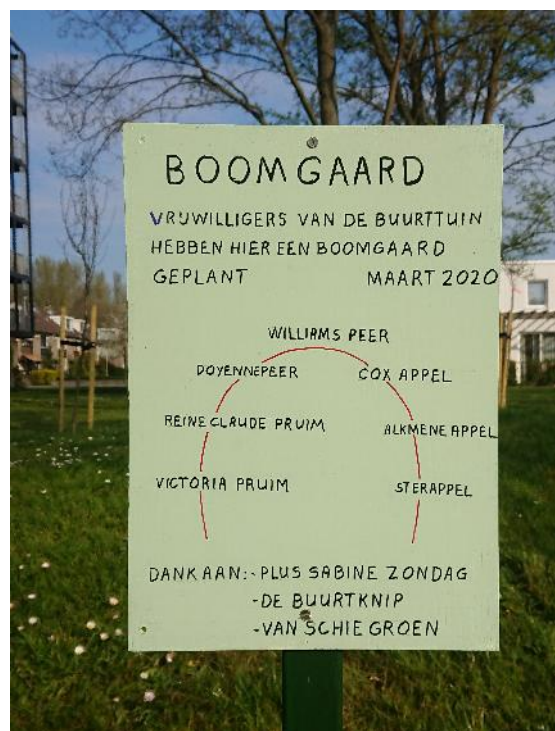 BOOMGAARD
VRIJWILLIGERS VAN DE BUURTTUIN
HEBBEN HIER EEN BOOMGAARD
GEPLANT MAART 2020
WILLIAMS PEER
DOYENNEPEER COX APPEL
REINE CLAUDE PRUIM ALKMENE APPEL
VICTORIA PRUIM STERAPPEL
DANK AAN:- PLUS SABINE ZONDAG
-DE BUURTKNIP
-VAN SCHIE GROEN